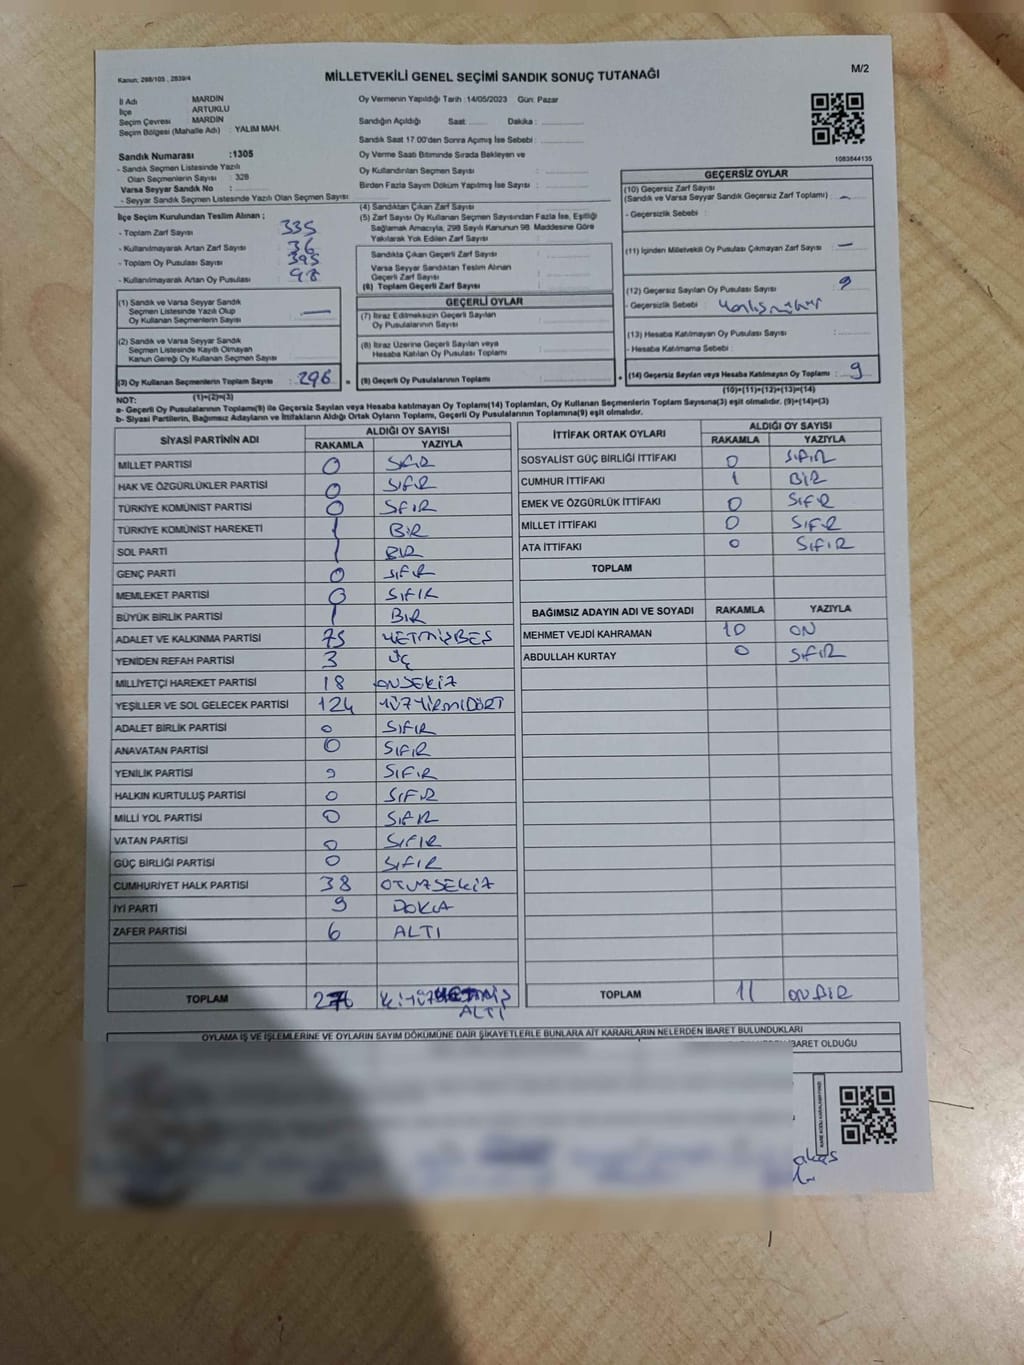 Kanun: 298/105 , 2839/4
MİLLETVEKİLİ GENEL SEÇİMİ SANDIK SONUÇ TUTANAĞI
M/2
İl Adı MARDİN
İlçe ARTUKLU
Seçim Çevresi MARDİN
Seçim Bölgesi (Mahalle Adı) : YALIM MAH.
Sandık Numarası :1305
- Sandık Seçmen Listesinde Yazılı
Olan Seçmenlerin Sayısı : 328
Varsa Seyyar Sandık No :
- Seyyar Sandık Seçmen Listesinde Yazılı Olan Seçmen Sayısı
İlçe Seçim Kurulundan Teslim Alınan ;
- Toplam Zarf Sayısı 335
- Kullanılmayarak Artan Zarf Sayısı 36
- Toplam Oy Pusulası Sayısı 395
- Kullanılmayarak Artan Oy Pusulası 98
(1) Sandık ve Varsa Seyyar Sandık
Seçmen Listesinde Yazılı Olup
Oy Kullanan Seçmenlerin Sayısı : —
(2) Sandık ve Varsa Seyyar Sandık
Seçmen Listesinde Kayıtlı Olmayan
Kanun Gereği Oy Kullanan Seçmen Sayısı :
(3) Oy Kullanan Seçmenlerin Toplam Sayısı : 296
(1)+(2)=(3)
Oy Vermenin Yapıldığı Tarih :14/05/2023 Gün: Pazar
Sandığın Açıldığı Saat: Dakika :
Sandık Saat 17.00'den Sonra Açılmış İse Sebebi :
Oy Verme Saati Bitiminde Sırada Bekleyen ve
Oy Kullandırılan Seçmen Sayısı :
Birden Fazla Sayım Döküm Yapılmış İse Sayısı :
(4) Sandıktan Çıkan Zarf Sayısı :
(5) Zarf Sayısı Oy Kullanan Seçmen Sayısından Fazla İse, Eşitliği
Sağlamak Amacıyla, 298 Sayılı Kanunun 98. Maddesine Göre
Yakılarak Yok Edilen Zarf Sayısı :
Sandıkta Çıkan Geçerli Zarf Sayısı :
Varsa Seyyar Sandıktan Teslim Alınan
Geçerli Zarf Sayısı :
(6) Toplam Geçerli Zarf Sayısı :
GEÇERLİ OYLAR
(7) İtiraz Edilmeksizin Geçerli Sayılan
Oy Pusulalarının Sayısı :
(8) İtiraz Üzerine Geçerli Sayılan veya
Hesaba Katılan Oy Pusulası Toplamı :
= (9) Geçerli Oy Pusulalarının Toplamı :
1083644135
GEÇERSİZ OYLAR
(10) Geçersiz Zarf Sayısı
(Sandık ve Varsa Seyyar Sandık Geçersiz Zarf Toplamı) : —
- Geçersizlik Sebebi :
(11) İçinden Milletvekili Oy Pusulası Çıkmayan Zarf Sayısı : —
(12) Geçersiz Sayılan Oy Pusulası Sayısı : 9
- Geçersizlik Sebebi : Yanlış mühür
(13) Hesaba Katılmayan Oy Pusulası Sayısı :
- Hesaba Katılmama Sebebi :
+ (14) Geçersiz Sayılan veya Hesaba Katılmayan Oy Toplamı : 9
(10)+(11)+(12)+(13)=(14)
NOT:
a- Geçerli Oy Pusulalarının Toplamı(9) ile Geçersiz Sayılan veya Hesaba katılmayan Oy Toplamı(14) Toplamları, Oy Kullanan Seçmenlerin Toplam Sayısına(3) eşit olmalıdır. (9)+(14)=(3)
b- Siyasi Partilerin, Bağımsız Adayların ve İttifakların Aldığı Ortak Oyların Toplamı, Geçerli Oy Pusulalarının Toplamına(9) eşit olmalıdır.
SİYASİ PARTİNİN ADI ALDIĞI OY SAYISI
RAKAMLA YAZIYLA
MİLLET PARTİSİ 0 SIFIR
HAK VE ÖZGÜRLÜKLER PARTİSİ 0 SIFIR
TÜRKİYE KOMÜNİST PARTİSİ 0 SIFIR
TÜRKİYE KOMÜNİST HAREKETİ 1 BİR
SOL PARTİ 1 BİR
GENÇ PARTİ 0 SIFIR
MEMLEKET PARTİSİ 0 SIFIR
BÜYÜK BİRLİK PARTİSİ 1 BİR
ADALET VE KALKINMA PARTİSİ 75 YETMİŞBEŞ
YENİDEN REFAH PARTİSİ 3 ÜÇ
MİLLİYETÇİ HAREKET PARTİSİ 18 ONSEKİZ
YEŞİLLER VE SOL GELECEK PARTİSİ 124 YÜZYİRMİDÖRT
ADALET BİRLİK PARTİSİ 0 SIFIR
ANAVATAN PARTİSİ 0 SIFIR
YENİLİK PARTİSİ 0 SIFIR
HALKIN KURTULUŞ PARTİSİ 0 SIFIR
MİLLİ YOL PARTİSİ 0 SIFIR
VATAN PARTİSİ 0 SIFIR
GÜÇ BİRLİĞİ PARTİSİ 0 SIFIR
CUMHURİYET HALK PARTİSİ 38 OTUZSEKİZ
İYİ PARTİ 9 DOKUZ
ZAFER PARTİSİ 6 ALTI
TOPLAM 276 İKİYÜZYETMİŞ
ALTI
İTTİFAK ORTAK OYLARI ALDIĞI OY SAYISI
RAKAMLA YAZIYLA
SOSYALİST GÜÇ BİRLİĞİ İTTİFAKI 0 SIFIR
CUMHUR İTTİFAKI 1 BİR
EMEK VE ÖZGÜRLÜK İTTİFAKI 0 SIFIR
MİLLET İTTİFAKI 0 SIFIR
ATA İTTİFAKI 0 SIFIR
TOPLAM
BAĞIMSIZ ADAYIN ADI VE SOYADI RAKAMLA YAZIYLA
MEHMET VEJDİ KAHRAMAN 10 ON
ABDULLAH KURTAY 0 SIFIR
TOPLAM 11 ONBİR
OYLAMA İŞ VE İŞLEMLERİNE VE OYLARIN SAYIM DÖKÜMÜNE DAİR ŞİKAYETLERLE BUNLARA AİT KARARLARIN NELERDEN İBARET BULUNDUKLARI
İBARET OLDUĞU